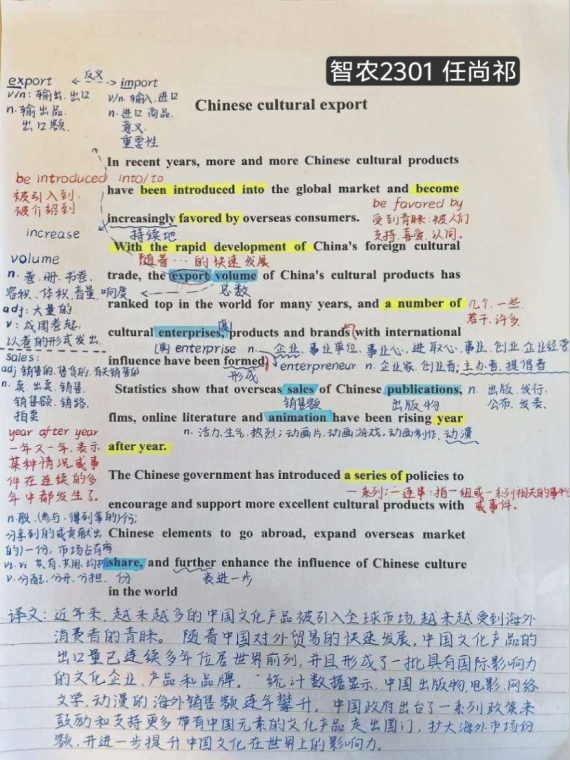 智农2301 任尚祁
export ←反义→ import
v/n: 输出.出口
n. 输出品.
出口额.
v/n. 输入.进口
n. 进口商品.
意义.
重要性
Chinese cultural export
In recent years, more and more Chinese cultural products
be introduced into/to
被引入到.
被介绍到
have been introduced into the global market and become
be favored by
受到青睐:被人们
支持.喜爱.认同.
increasingly favored by overseas consumers.
increase
持续地
With the rapid development of China's foreign cultural
随着…的快速发展
volume
n. 卷.册.书卷.
容积.体积.音量.响度
adj: 大量的
v: 成团卷起.
以卷的形式发出.
trade, the export volume of China's cultural products has
总数
ranked top in the world for many years, and a number of
几个.一些.
若干.许多.
cultural enterprises, products and brands with international
enterprise n. 企业.事业单位.事业心.进取心.事业.创业.企业经营
influence have been formed.
形成
enterpreneur n. 企业家.创业者;主办者.提倡者
sales:
adj 销售的.售货的.有关销售的
n. 卖.出卖.销售.
销售额.销路.
拍卖
Statistics show that overseas sales of Chinese publications,
销售额
出版物
n. 出版.发行.
公布.发表.
flms, online literature and animation have been rising year
n. 活力.生气.热烈;动画片.动画游戏.动画制作.动漫
year after year
一年又一年.表示
某种情况或事
件在连续的多
年中都发生了.
after year.
The Chinese government has introduced a series of policies to
一系列;一连串:指一组或一系列相关的事物
或事件.
encourage and support more excellent cultural products with
n. 股.(参与.得到等的)份;
分享到的或贡献出
的)一份,市场占有率
v. 分配.分开.分担.
Chinese elements to go abroad, expand overseas market
share, and further enhance the influence of Chinese culture
份
表进一步
in the world
译文: 近年来,越来越多的中国文化产品被引入全球市场,越来越受到海外
消费者的青睐。随着中国对外贸易的快速发展,中国文化产品的
出口量已连续多年位居世界前列,并且形成了一批具有国际影响力
的文化企业、产品和品牌。统计数据显示,中国出版物,电影,网络
文学,动漫的海外销售额逐年攀升。中国政府出台了一系列政策来
鼓励和支持更多带有中国元素的文化产品走出国门,扩大海外市场份
额,并进一步提升中国文化在世界上的影响力。